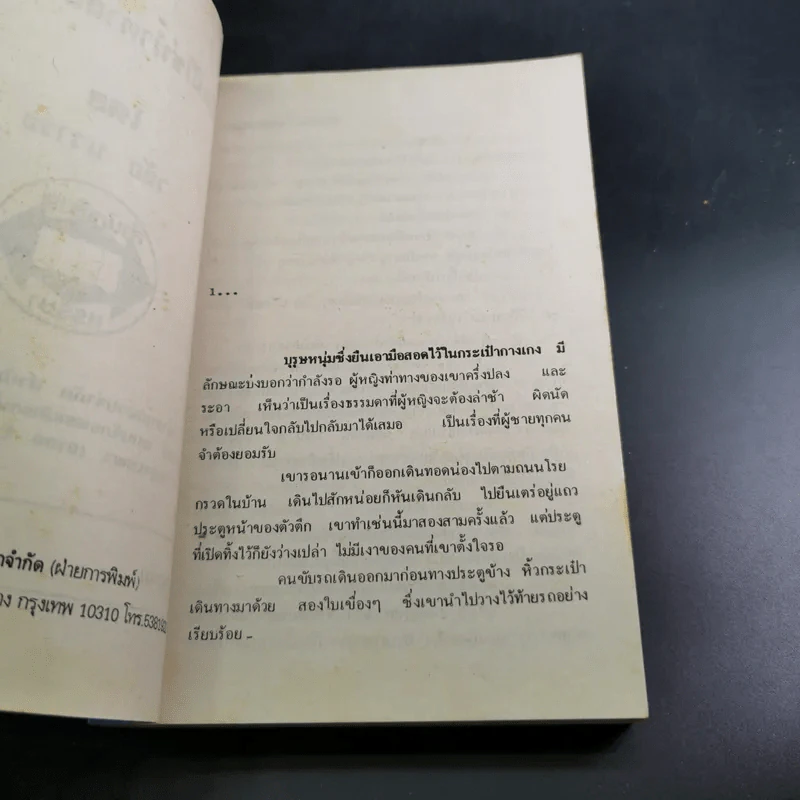 าจำกัด (ฝ่ายการพิมพ์)
กรุงเทพ 10310 โทร.5381
1...
บุรุษหนุ่มซึ่งยืนเอามือสอดไว้ในกระเป๋ากางเกง มี
ลักษณะบ่งบอกว่ากำลังรอ ผู้หญิงท่าทางของเขาครึ่งปลง และ
ระอา เห็นว่าเป็นเรื่องธรรมดาที่ผู้หญิงจะต้องล่าช้า ผิดนัด
หรือเปลี่ยนใจกลับไปกลับมาได้เสมอ เป็นเรื่องที่ผู้ชายทุกคน
จำต้องยอมรับ
เขารอนานเข้าก็ออกเดินทอดน่องไปตามถนนโรย
กรวดในบ้าน เดินไปสักหน่อยก็หันเดินกลับ ไปยืนเตร่อยู่แถว
ประตูหน้าของตัวตึก เขาทำเช่นนี้มาสองสามครั้งแล้ว แต่ประตู
ที่เปิดทิ้งไว้ก็ยังว่างเปล่า ไม่มีเงาของคนที่เขาตั้งใจรอ
คนขับรถเดินออกมาก่อนทางประตูข้าง หิ้วกระเป๋า
เดินทางมาด้วย สองใบเขื่องๆ ซึ่งเขานำไปวางไว้ท้ายรถอย่าง
เรียบร้อย -